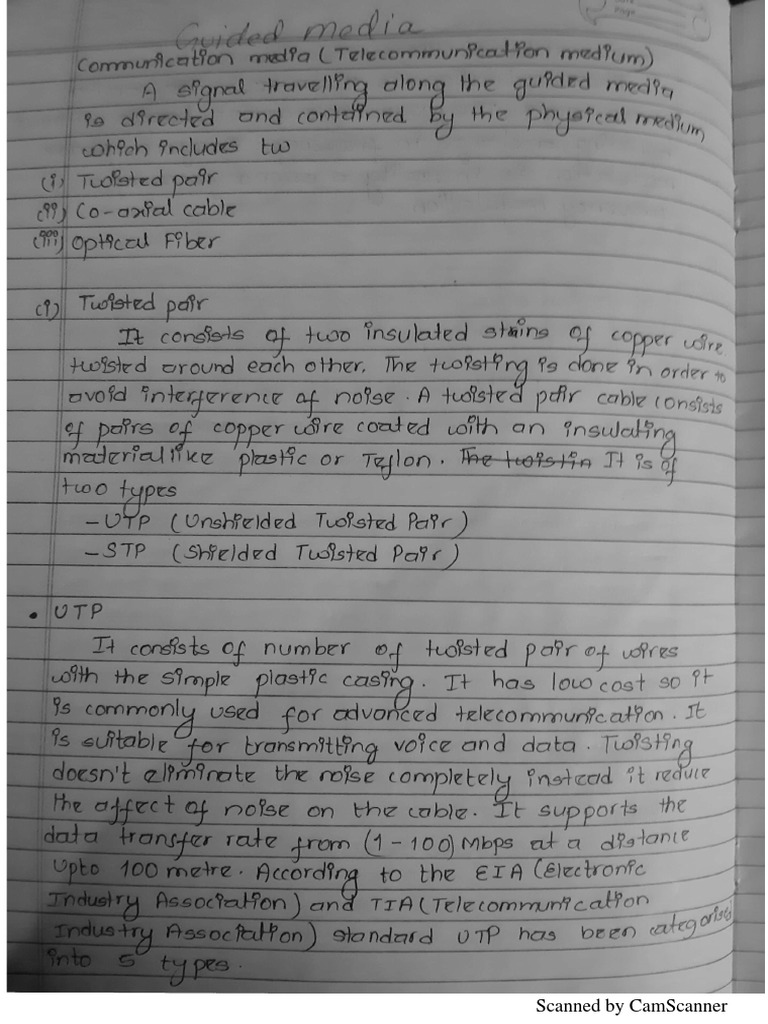 Guided media
Communication media (Telecommunication medium)
A signal travelling along the guided media
is directed and contained by the physical medium
which includes tw
(i) Twisted pair
(ii) Co-axial cable
(iii) Optical Fiber
(i) Twisted pair
It consists of two insulated strains of copper wire
twisted around each other. The twisting is done in order to
avoid interference of noise. A twisted pair cable consists
of pairs of copper wire coated with an insulating
material like plastic or Teflon. The twistin It is of
two types
- UTP (Unshielded Twisted Pair)
- STP (Shielded Twisted Pair)
• UTP
It consists of number of twisted pair of wires
with the simple plastic casing. It has low cost so it
is commonly used for advanced telecommunication. It
is suitable for transmitting voice and data. Twisting
doesn't eliminate the noise completely instead it reduce
the affect of noise on the cable. It supports the
data transfer rate from (1-100) Mbps at a distance
upto 100 metre. According to the EIA (Electronic
Industry Association) and TIA (Telecommunication
Industry Association) standard UTP has been categorised
into 5 types.
Scanned by CamScanner